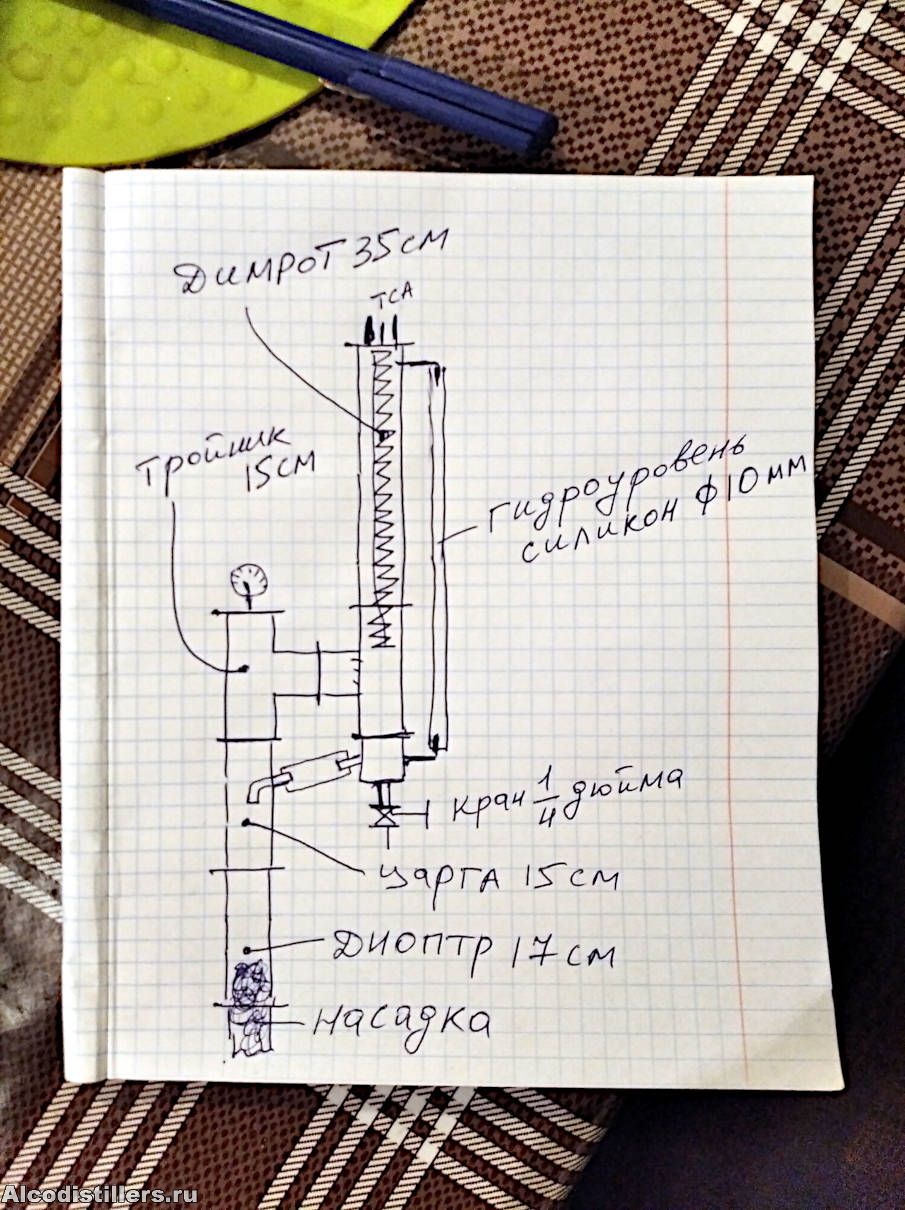 Димрот 35см
ТСА
Тройник
15см
Гидроуровень
силикон ф10мм
Кран 1/4 дюйма
Царга 15см
Диоптр 17см
Насадка
Alcodistillers.ru